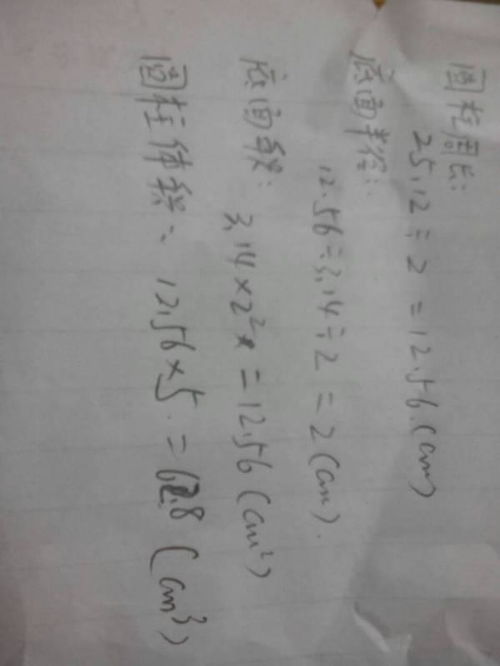 圆柱周长:
25.12÷2=12.56(cm)
底面半径:
12.56÷3.14÷2=2(cm).
底面积:
3.14×2²×=12.56(cm²)
圆柱体积:
12.56×5.=62.8(cm³)